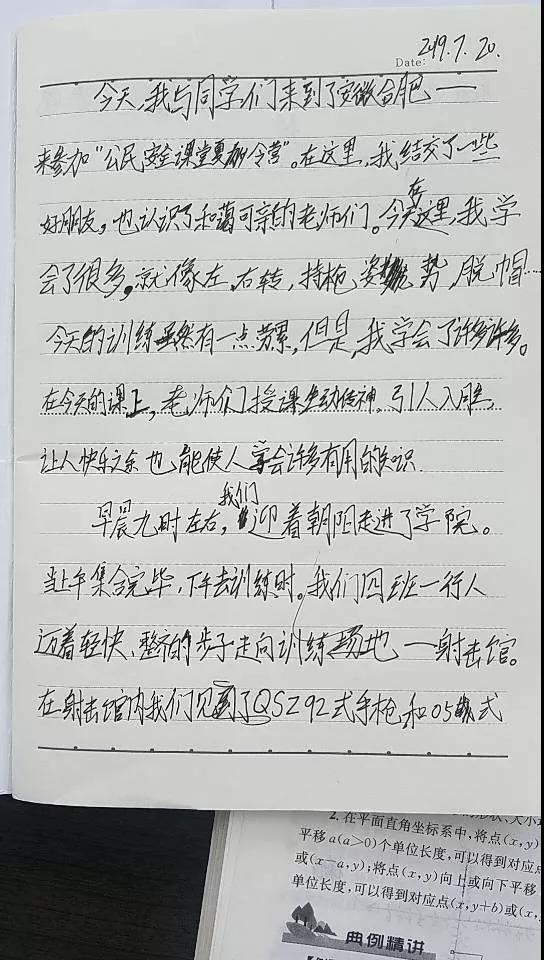 Date: 2019.7.20.
今天,我与同学们来到了安徽合肥——
来参加“公民安全课堂夏令营”。在这里,我结交了一些
好朋友,也认识了和蔼可亲的老师们。今天在这里,我学
会了很多。就像左、右转,持枪姿势,脱帽……
今天的训练虽然有一点劳累,但是,我学会了许多许多。
在今天的课上,老师们授课生动传神,引人入胜,
让人快乐之余也能使人学会许多有用的知识.
早晨九时左右,我们迎着朝阳走进了学院。
当上午集合完毕,下午去训练时。我们四班一行人
迈着轻快、整齐的步子走向训练场地一射击馆。
在射击馆内我们见到了QSZ92式手枪,和05式
2.在平面直角坐标系中,将点(x,y)
平移a(a>0)个单位长度,可以得到对应点
或(x-a,y);将点(x,y)向上或向下平移
单位长度,可以得到对应点(x,y+b)或(x,
典例精讲